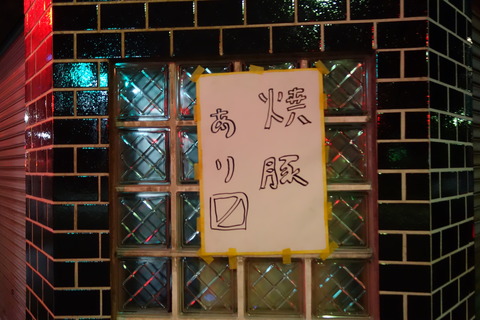 焼豚
あり〼